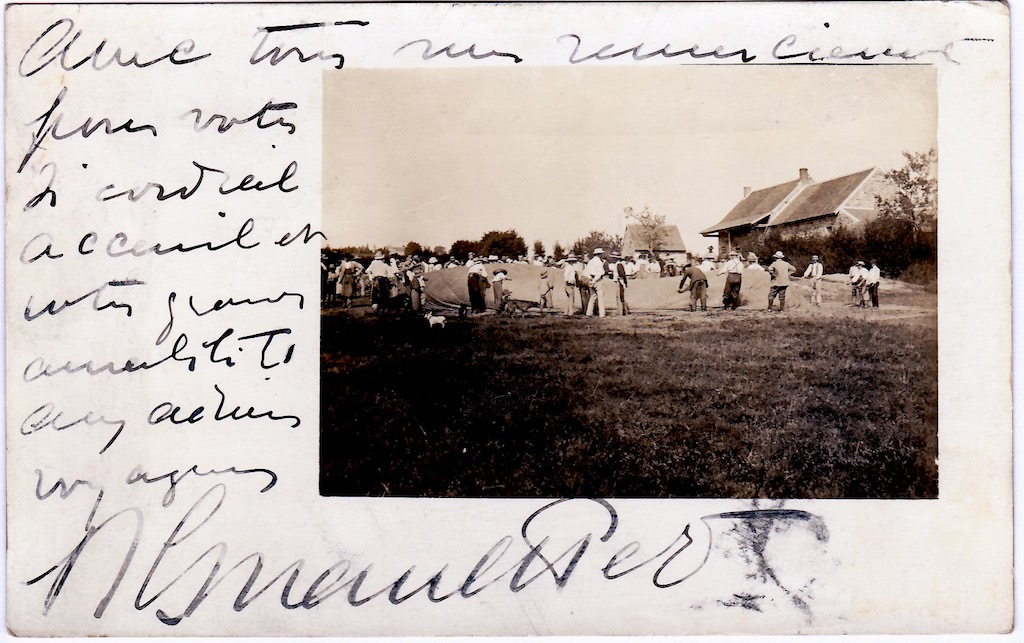 Avec tous mes remerciements
pour votre
si cordial
acceuil et
votre grande
amabilité
aux aériens
voyageurs